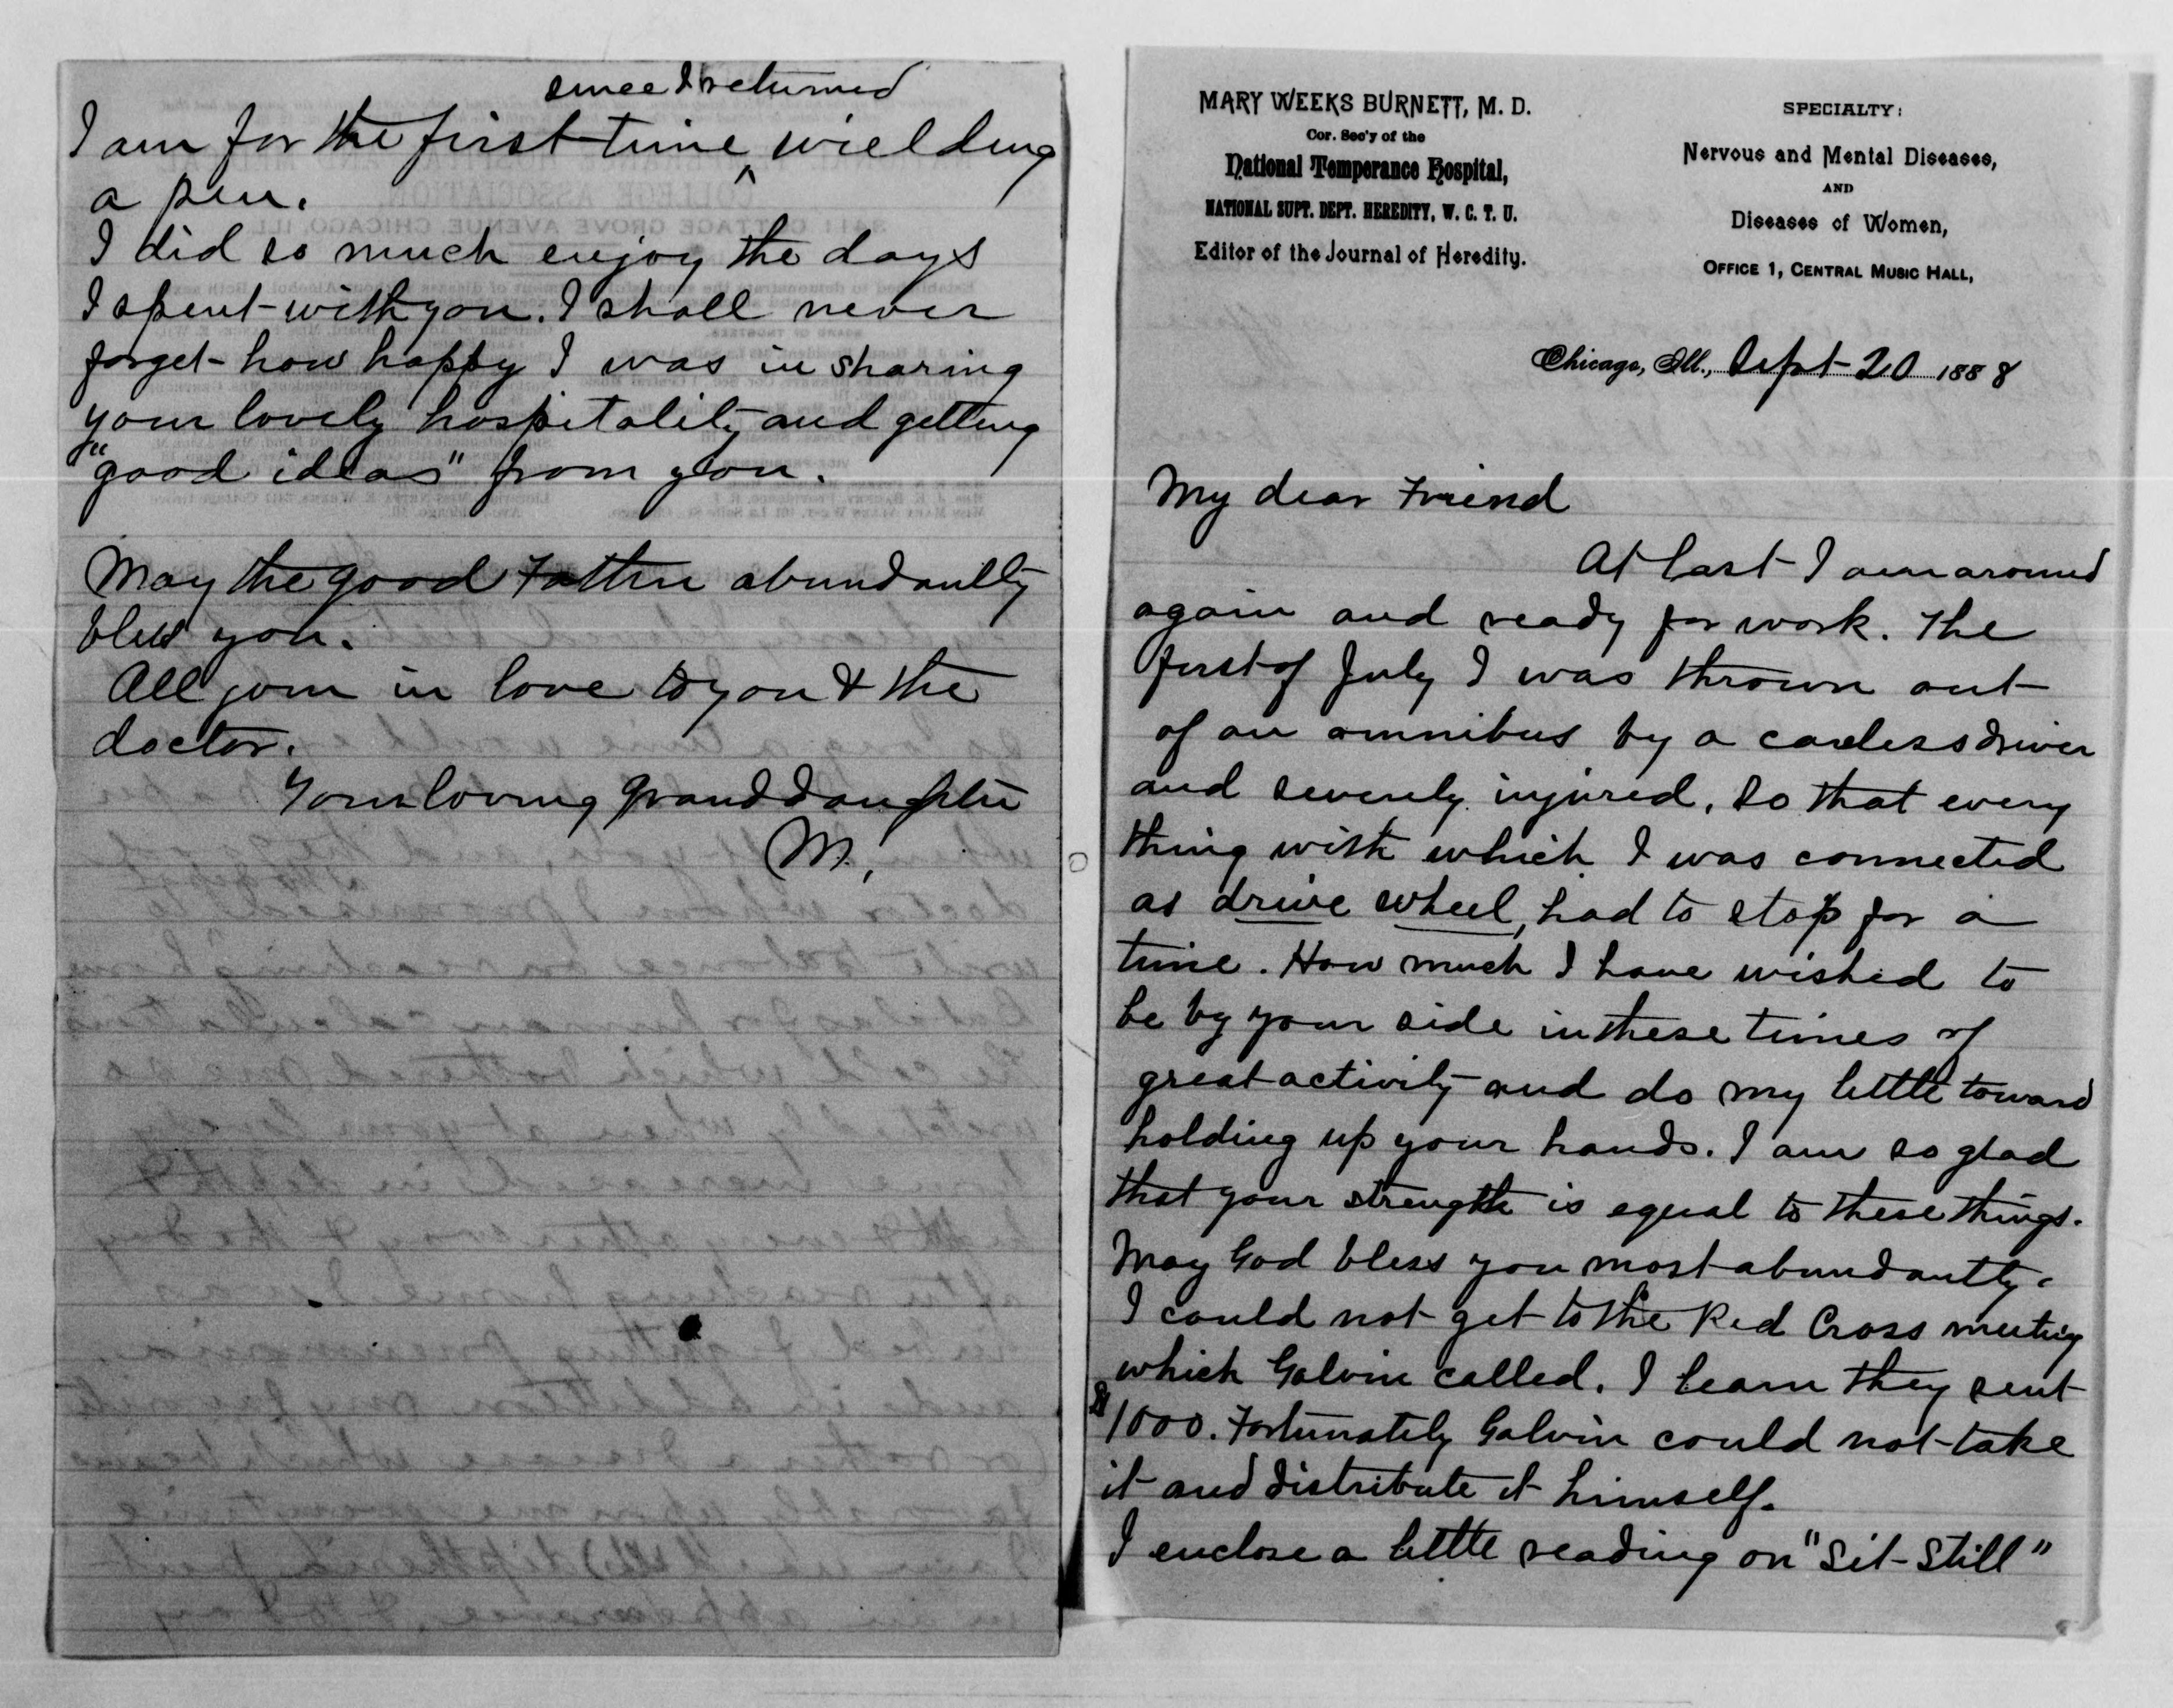 since I returned
I am for the first time ^ wielding
a pen.
I did so much enjoy the days
I spent with you. I shall never
forget how happy I was in sharing
your lovely hospitality and getting
"good ideas" from you.
May the good Father abundantly
bless you.
All join in love to you & the
doctor.
Your loving Granddaughter
M.
MARY WEEKS BURNETT, M. D.
Cor. Sec'y of the
National Temperance Hospital,
NATIONAL SUPT. DEPT. HEREDITY, W. C. T. U.
Editor of the Journal of Heredity.
SPECIALTY:
Nervous and Mental Diseases,
AND
Diseases of Women,
OFFICE 1, CENTRAL MUSIC HALL,
Chicago, Ill., Sept 20 1888
My dear Friend
At last I am around
again and ready for work. The
first of July I was thrown out
of an omnibus by a careless driver
and severely injured, so that every
thing with which I was connected
as drive wheel, had to stop for a
time. How much I have wished to
be by your side in these times of
great activity and do my little toward
holding up your hands. I am so glad
that your strength is equal to these things.
May God bless you most abundantly.
I could not get to the Red Cross meeting
which Galvin called. I learn they sent
$1000. Fortunately Galvin could not take
it and distribute it himself.
I enclose a little reading on "Sit Still"